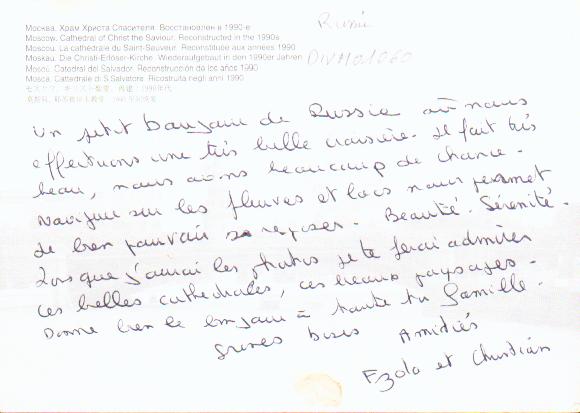 Москва. Храм Христа Спасителя. Восстановлен в 1990-е
Moscow. Cathedral of Christ the Saviour. Reconstructed in the 1990s
Moscou. La cathédrale du Saint-Sauveur. Reconstituée aux années 1990
Moskau. Die Christi-Erlöser-Kirche. Wiederaufgebaut in den 1990er Jahren
Moscú. Catedral del Salvador. Reconstrucción de los años 1990
Mosca. Cattedrale di S.Salvatore. Ricostruita negli anni 1990
Russie
DIVM01060
Un petit bonjour de Russie où nous
effectuons une très belle croisière. Il fait très
beau, nous avons beaucoup de chance.
Naviguer sur les fleuves et lacs nous permet
de bien pouvoir se reposer. Beauté. Sérénité.
Lorsque j'aurai les photos je te ferai admirer
ces belles cathédrales, ces beaux paysages.
Donne bien le bonjour à toute ta famille.
Grosses bises Amitiés
et Christian